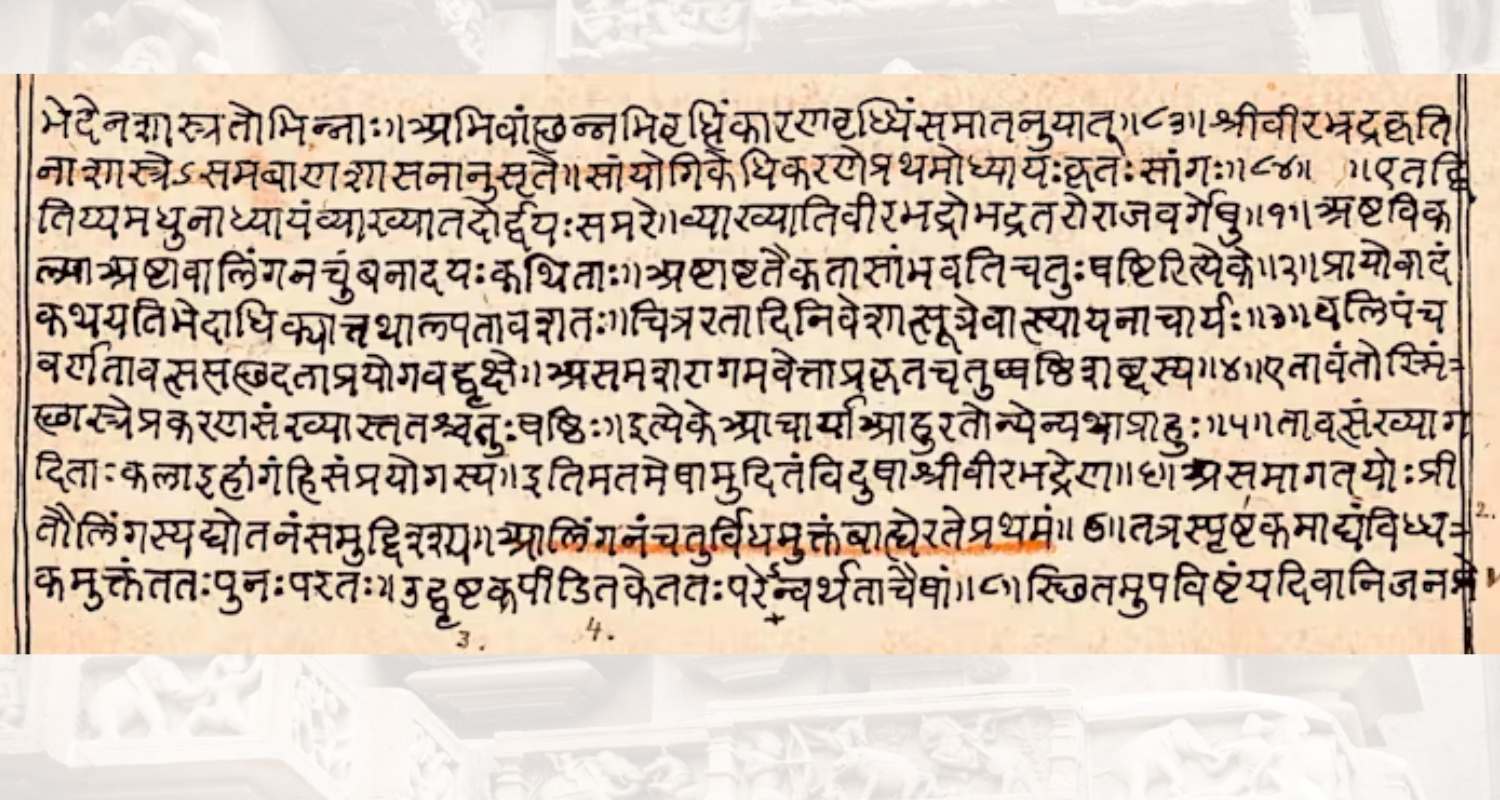 भेदेनशास्त्रतोभिन्नाः॥अभिवांछन्नभिवृद्धिंकारणवृध्धिंसमातनुयात्॥८३॥श्रीवीरभद्रकृति
नाशास्त्रेऽसमबाणशासनानुसृते॥सांयोगिकेधिकरणेप्रथमोध्यायःकृतःसांगः॥८४॥ ॥एतद्द्वि
तिय्यमधुनाध्यायंव्याख्यातदोर्द्वयःसमरे॥व्याख्यातिवीरभद्रोभद्रतरोराजवर्गेषु॥१॥अष्टविक
ल्पाअष्टावालिंगनचुंबनादयःकथिताः॥अष्टाष्टतैकतासांभवतिचतुःषष्टिरित्येके॥२॥प्रायोवादं
कथयतिभेदाधिक्यात्तथाल्पतावशतः॥चित्ररतादिनिवेशात्सूत्रेवात्स्यायनाचार्यः॥३॥षलिपंच
वर्णतावत्ससछदताप्रयोगवद्वृक्षे॥असमशरागमवेत्ताप्रकृतचतुष्षष्ठिशब्दस्य॥४॥एतावंतोस्मिं-
छास्त्रेप्रकरणसंख्यास्ततश्चतुःषष्ठिः॥इत्येकेआचार्याआहुरतोन्येन्यथाप्राहुः॥५॥तावत्संख्याग
दिताःकलाइहांगंहिसंप्रयोगस्य॥इतिमतमेषामुदितंविदुषाश्रीवीरभद्रेण॥६॥असमागतयोःप्री
तौलिंगस्यद्योतनंसमुद्दिश्य॥आलिंगनंचतुर्विधमुक्तंबाह्येरतेप्रथमं॥७॥तत्रस्पृष्टकमाद्यंविध्य- 2.
कमुक्तंततःपुनःपरतः॥उद्वृष्टकपीडितकेततःपरेन्वर्थताचैषां॥८॥स्छितमुपविष्टंयदिवानिजनप्रे
3. 4. +